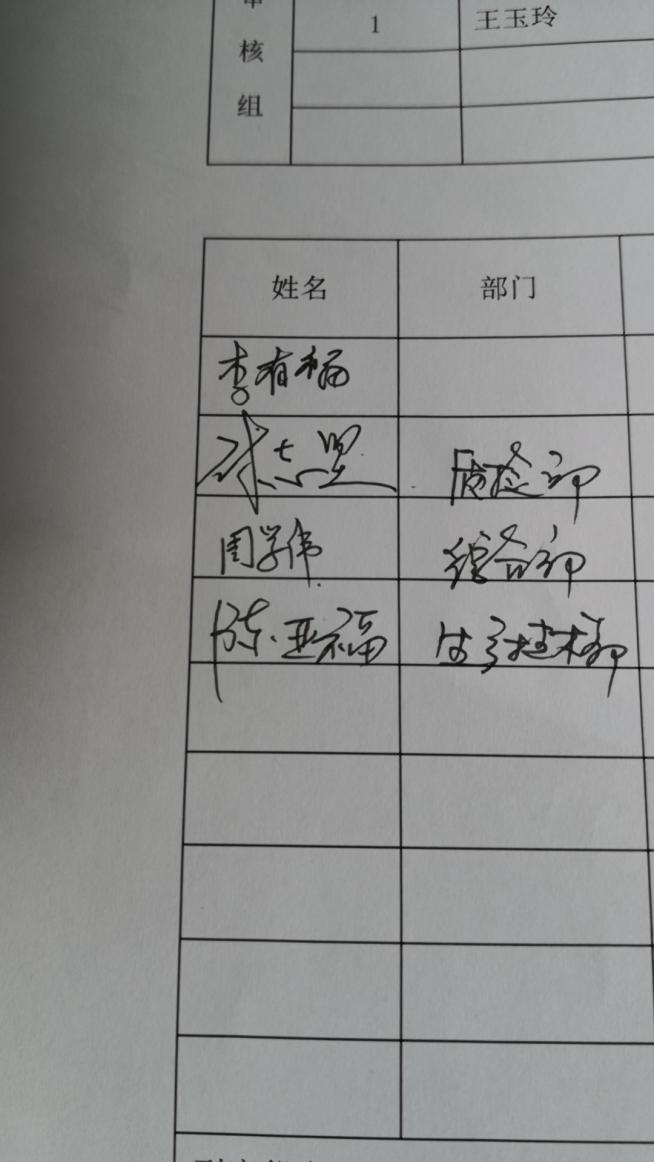 审核组
1 王玉玲
姓名 部门
李有福
志坚 质检部
周学伟 综合部
陈亚福 生产技术部